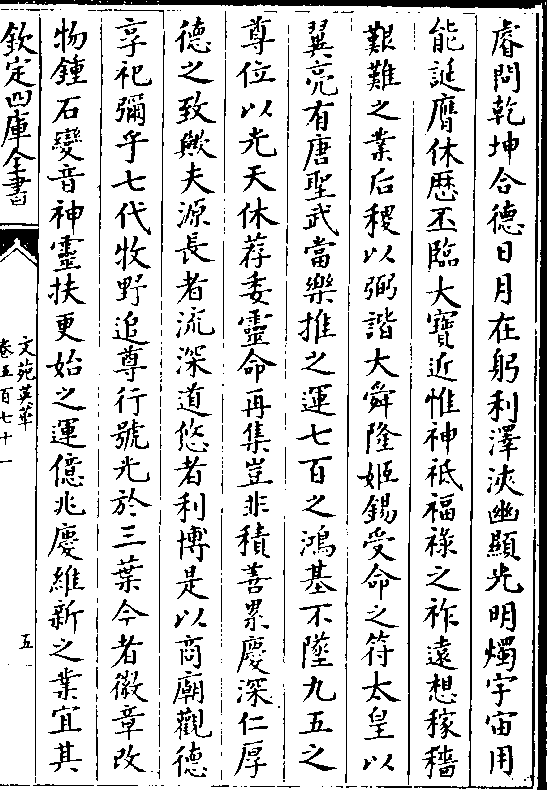 睿問乾坤合德日月在躬利澤浹幽顯光明燭宇宙用
能誕膺休歴丕臨大寶近惟神祇福祿之祚遠想稼穡
艱難之業后稷以弼諧大舜隆姬錫受命之符太皇以
翼亮有唐聖武當樂推之運七百之鴻基不墜九五之
尊位以光天休荐委靈命再集豈非積善累慶深仁厚
德之致歟夫源長者流深道悠者利博是以商廟觀德
享祀彌乎七代牧野追尊行號光於三葉今者徽章改
物鍾石變音神靈扶更始之運億兆慶維新之業宜其
欽定四庫全書
文苑英華
卷五百七十一
五